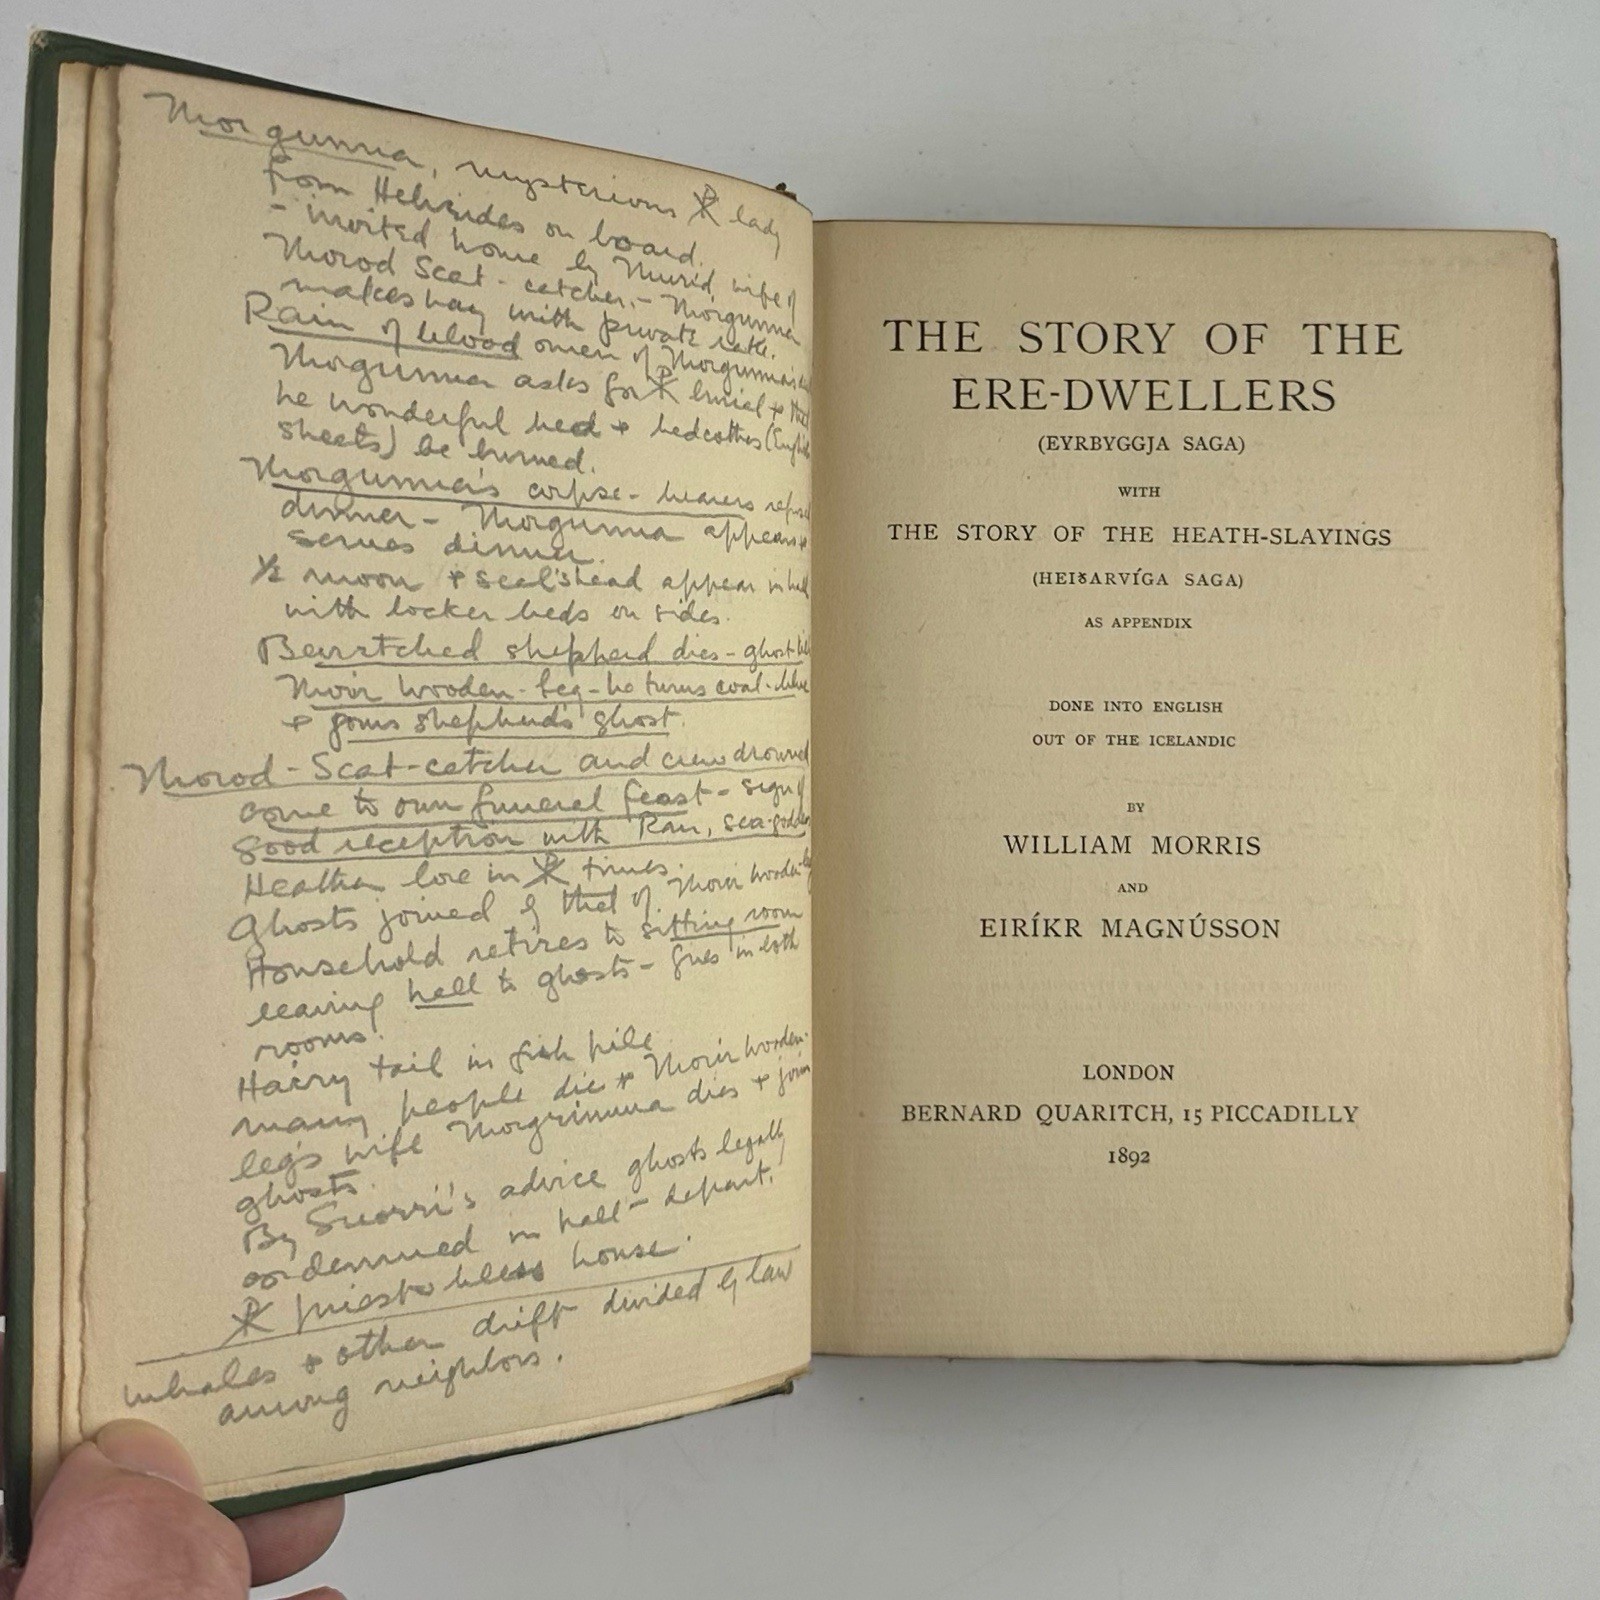 Thorgunna, mysterious ☧ lady
from Hebrides on board.
- invited home by Thurid, wife of
Thorod Scat-catcher. - Thorgunna
makes hay with private rake.
Rain of blood omen of Thorgunna's
Thorgunna asks for ☧ burial + that
he wonderful bed + bedcothes (English
sheets) be burned.
Thorgunna's corpse - bearers refused
dinner - Thorgunna appears +
serves dinner.
½ moon + seal's head appear in hall
with locker beds on sides.
Bewitched shepherd dies - ghost
Thorir wooden-leg - he turns coal-blue
+ joins shepherd's ghost.
Thorod-Scat-catcher and crew drowned
come to own funeral feast - sign of
Good reception with Ran, sea-goddess
Heathen lore in ☧ times.
Ghosts joined by that of Thorir wooden-leg
Household retires to sitting room
leaving hall to ghosts - fires in both
rooms!
Hairy tail in fish pile
many people die + Thorir wooden-
leg's wife Thorgrimma dies + joins
ghosts.
By Snorri's advice ghosts legally
condemned in hall - depart.
☧ priests bless house.
Whales + other drift divided by law
among neighbors.
THE STORY OF THE
ERE-DWELLERS
(EYRBYGGJA SAGA)
WITH
THE STORY OF THE HEATH-SLAYINGS
(HEIÐARVÍGA SAGA)
AS APPENDIX
DONE INTO ENGLISH
OUT OF THE ICELANDIC
BY
WILLIAM MORRIS
AND
EIRÍKR MAGNÚSSON
LONDON
BERNARD QUARITCH, 15 PICCADILLY
1892